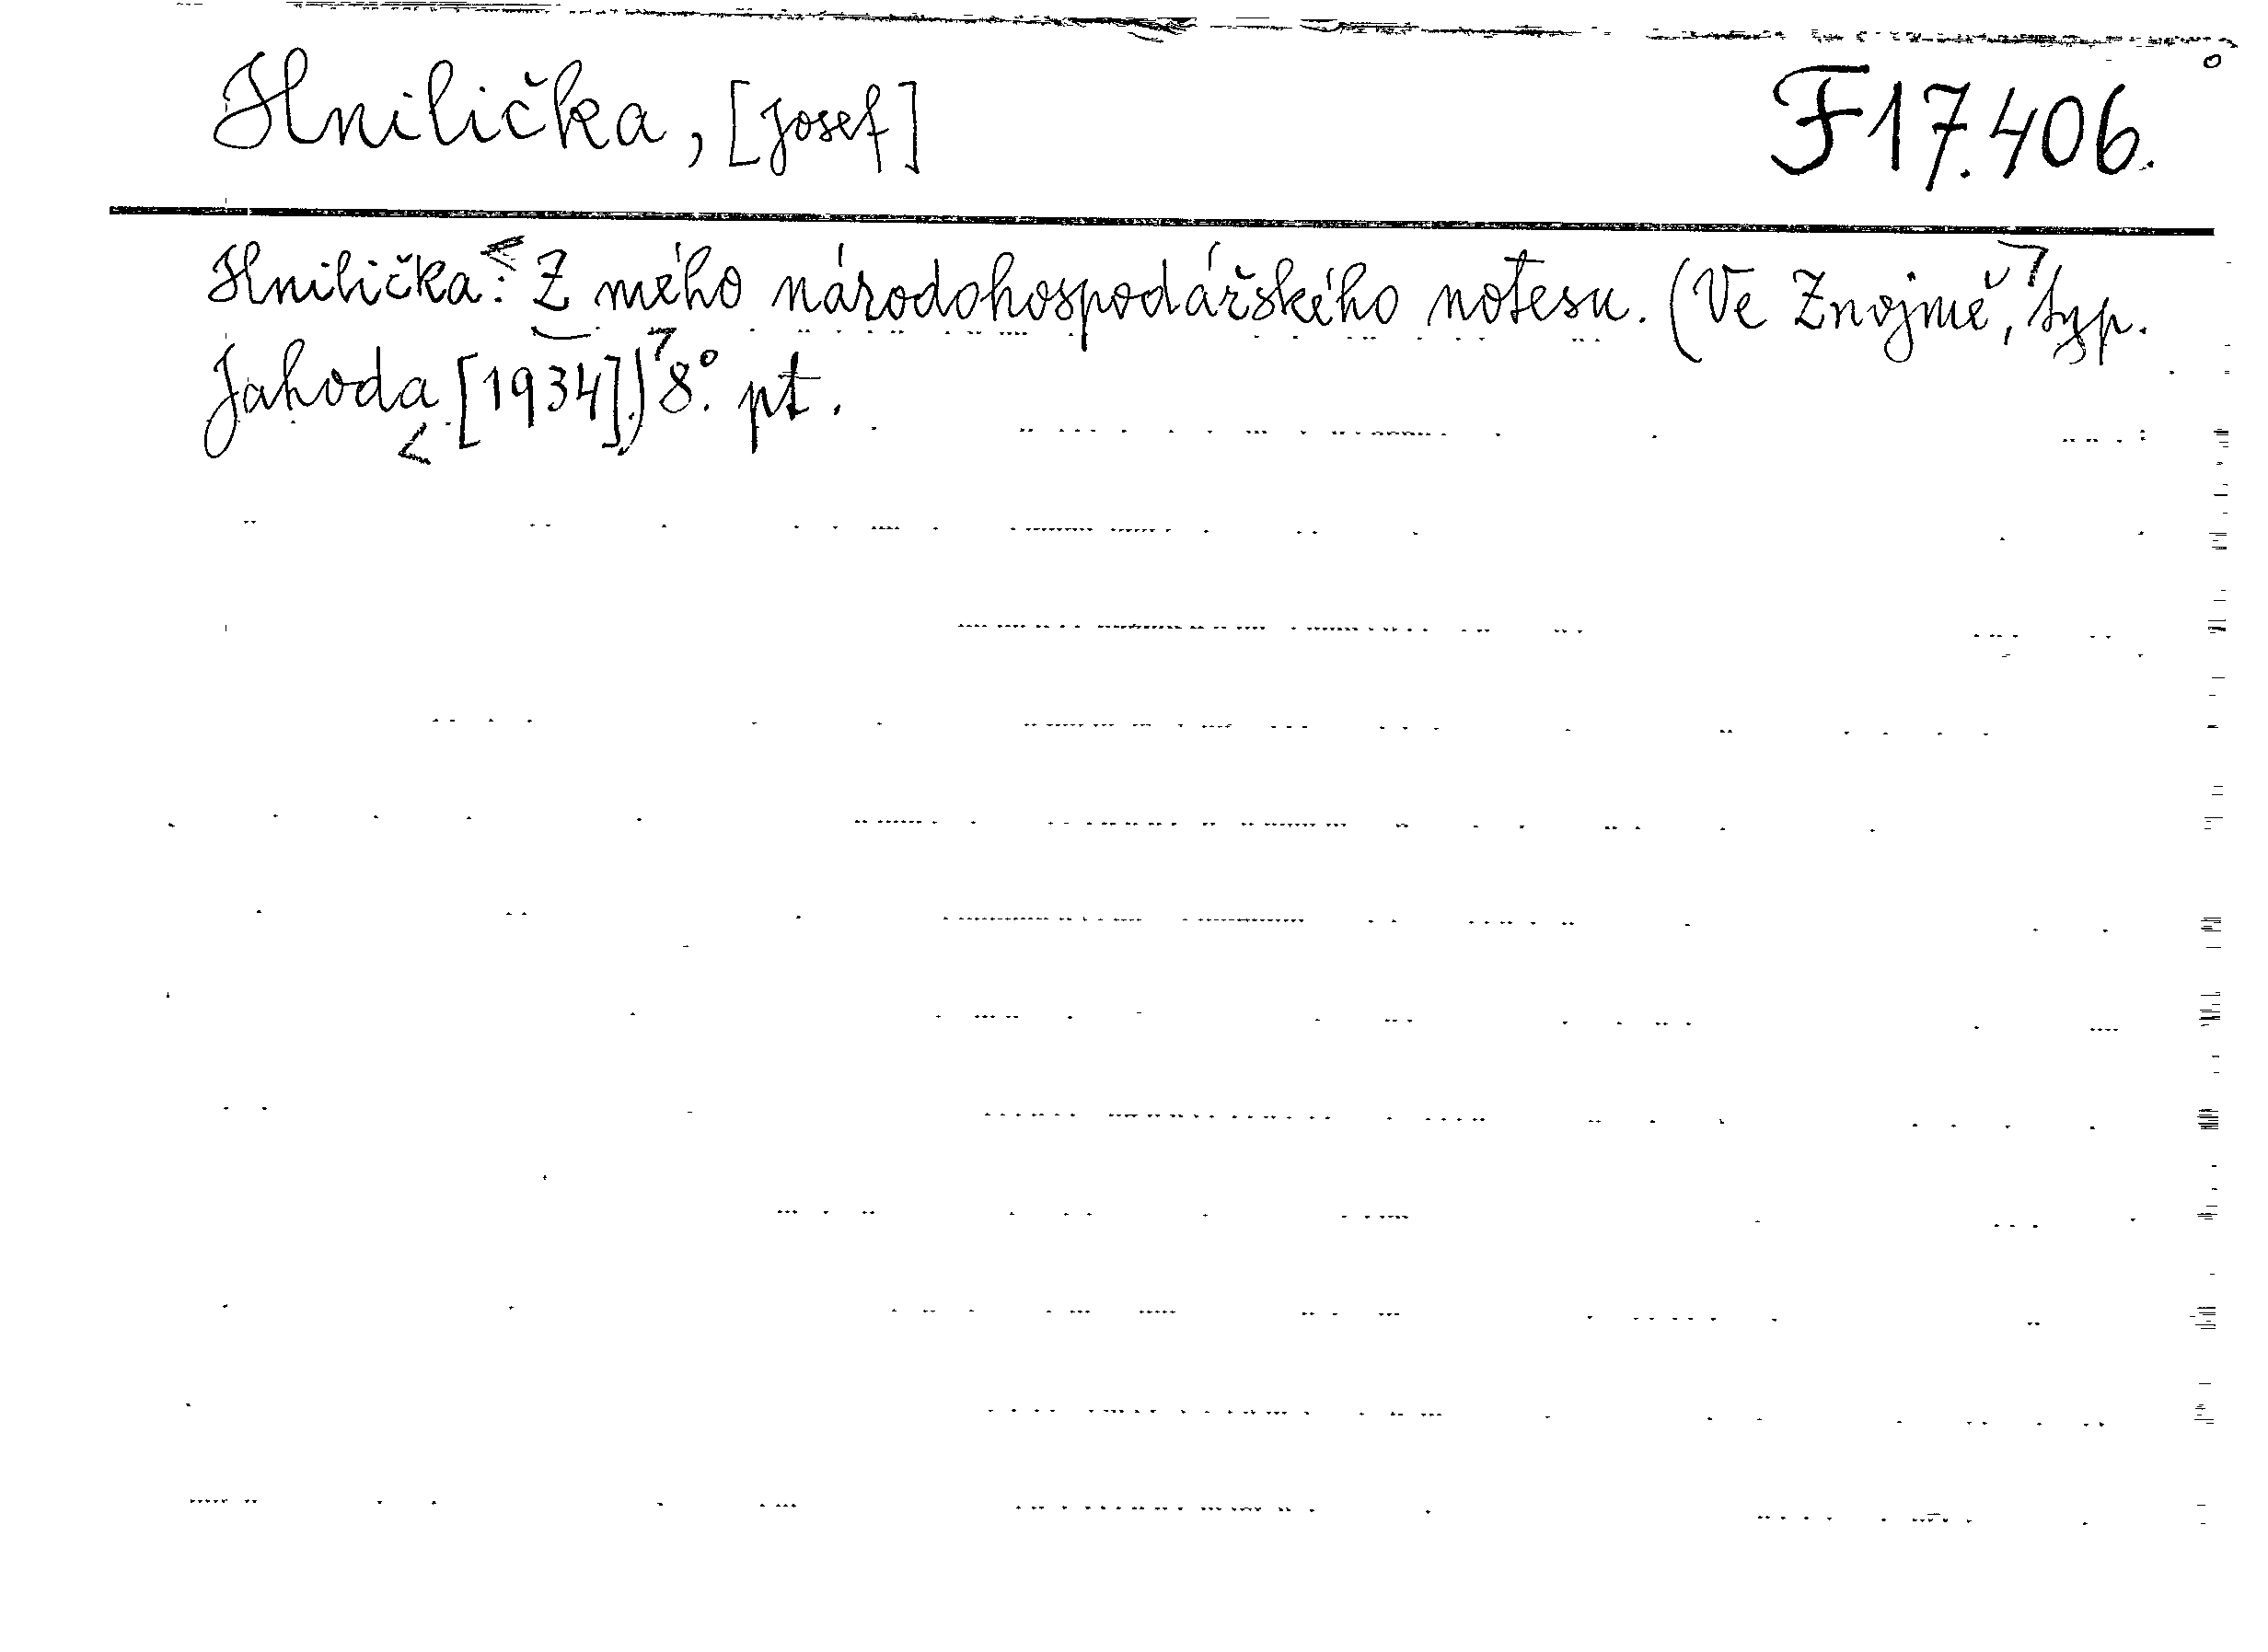 Hnilička, [Josef] F 17.406.
Hnilička: Z mého národohospodářského notesu. (Ve Znojmě, typ.
Jahoda [1934].) 8°. pt.